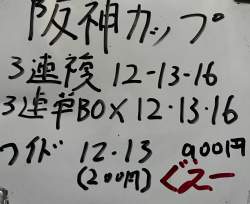 阪神カップ
3連複 12-13-16
3連単BOX 12・13・16
ワイド 12.13 900円
(200円) ぐえー